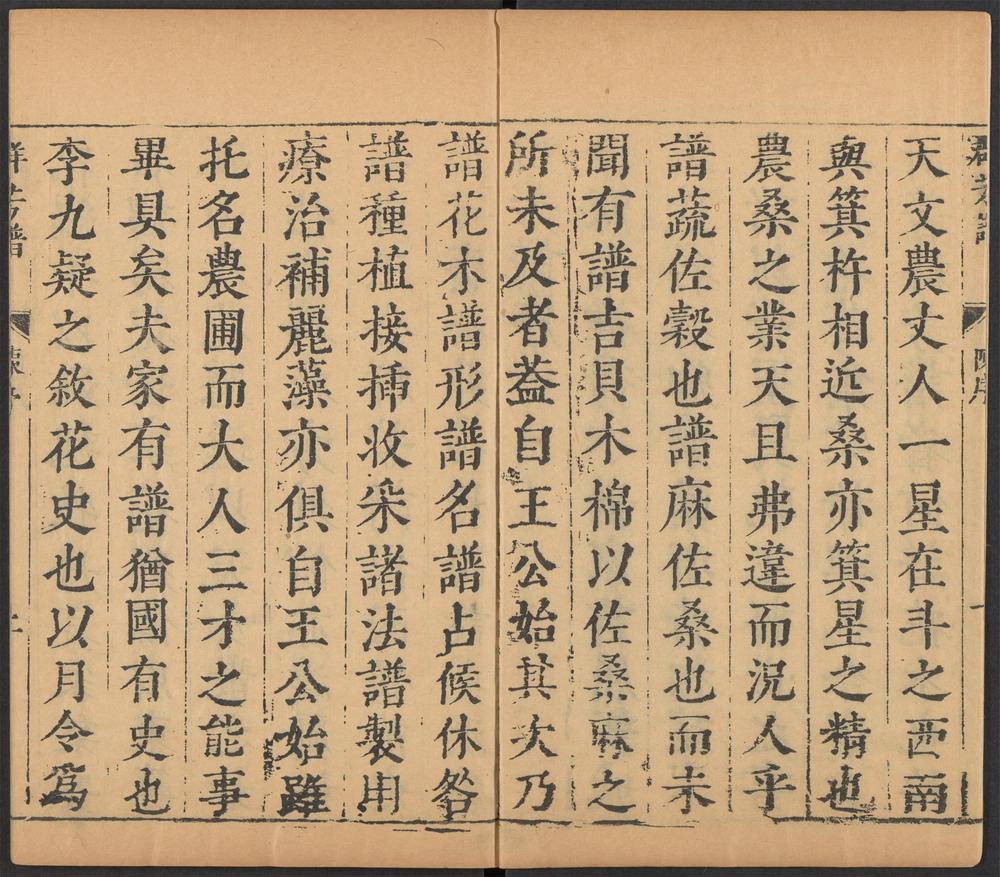 天文農丈人一星在斗之西南
與箕杵相近桑亦箕星之精也
農桑之業天且弗違而況人乎
譜蔬佐穀也譜麻佐桑也而未
聞有譜吉貝木棉以佐桑麻之
所未及者葢自王公始其次乃
譜花木譜形譜名譜占候休咎
譜種植接揷收采諸法譜製用
療治補麗藻亦俱自王公始雖
托名農圃而大人三才之能事
畢具矣夫家有譜猶國有史也
李九疑之敘花史也以月令爲